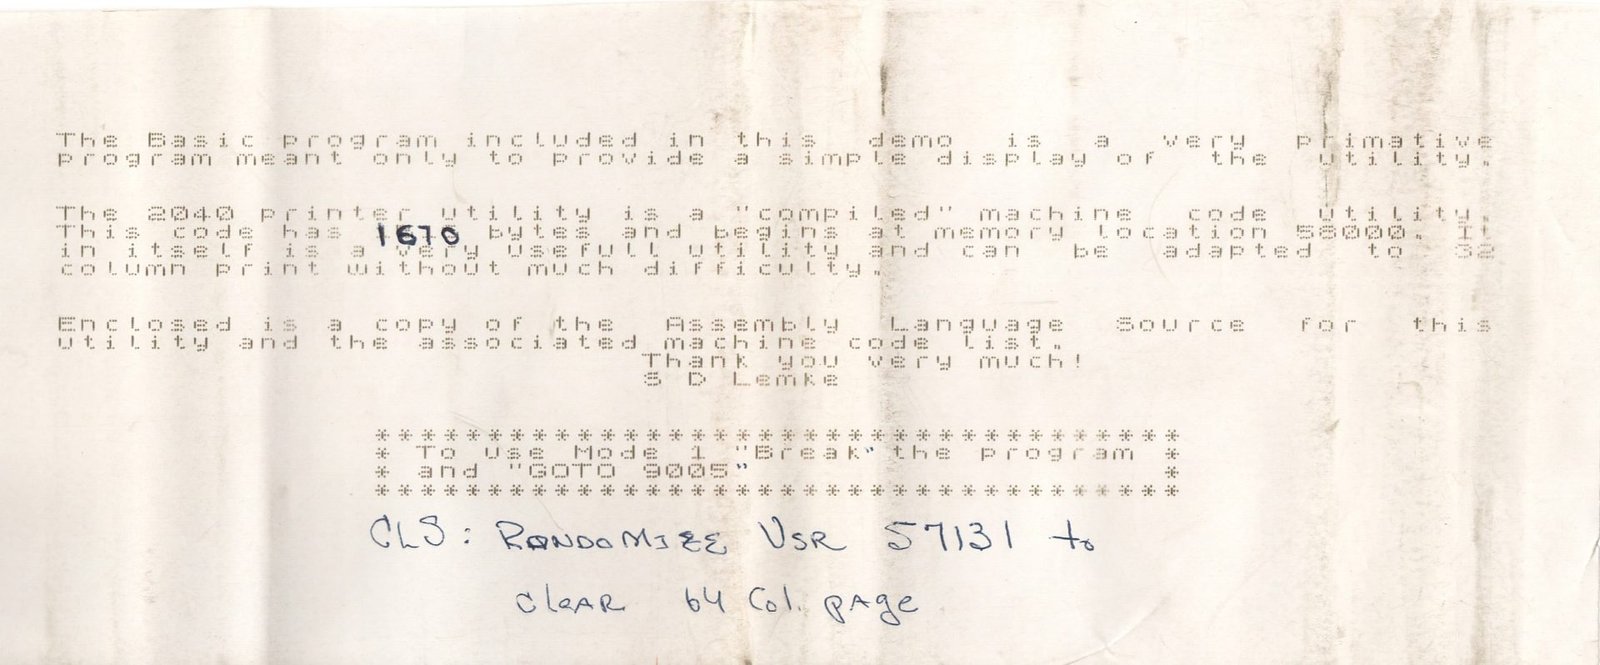 The Basic program included in this demo is a very primative
program meant only to provide a simple display of the utility.
The 2040 printer utility is a "compiled" machine code utility.
This code has 1670 bytes and begins at memory location 58000. It
in itself is a very usefull utility and can be adapted to 32
column print without much difficulty.
Enclosed is a copy of the Assembly Language Source for this
utility and the associated machine code list.
Thank you very much!
S D Lemke
***********************************
* To use Mode 1 "Break" the program *
* and "GOTO 9005" *
***********************************
CLS: RANDOMIZE USR 57131 to
cleAR 64 Col. pAge